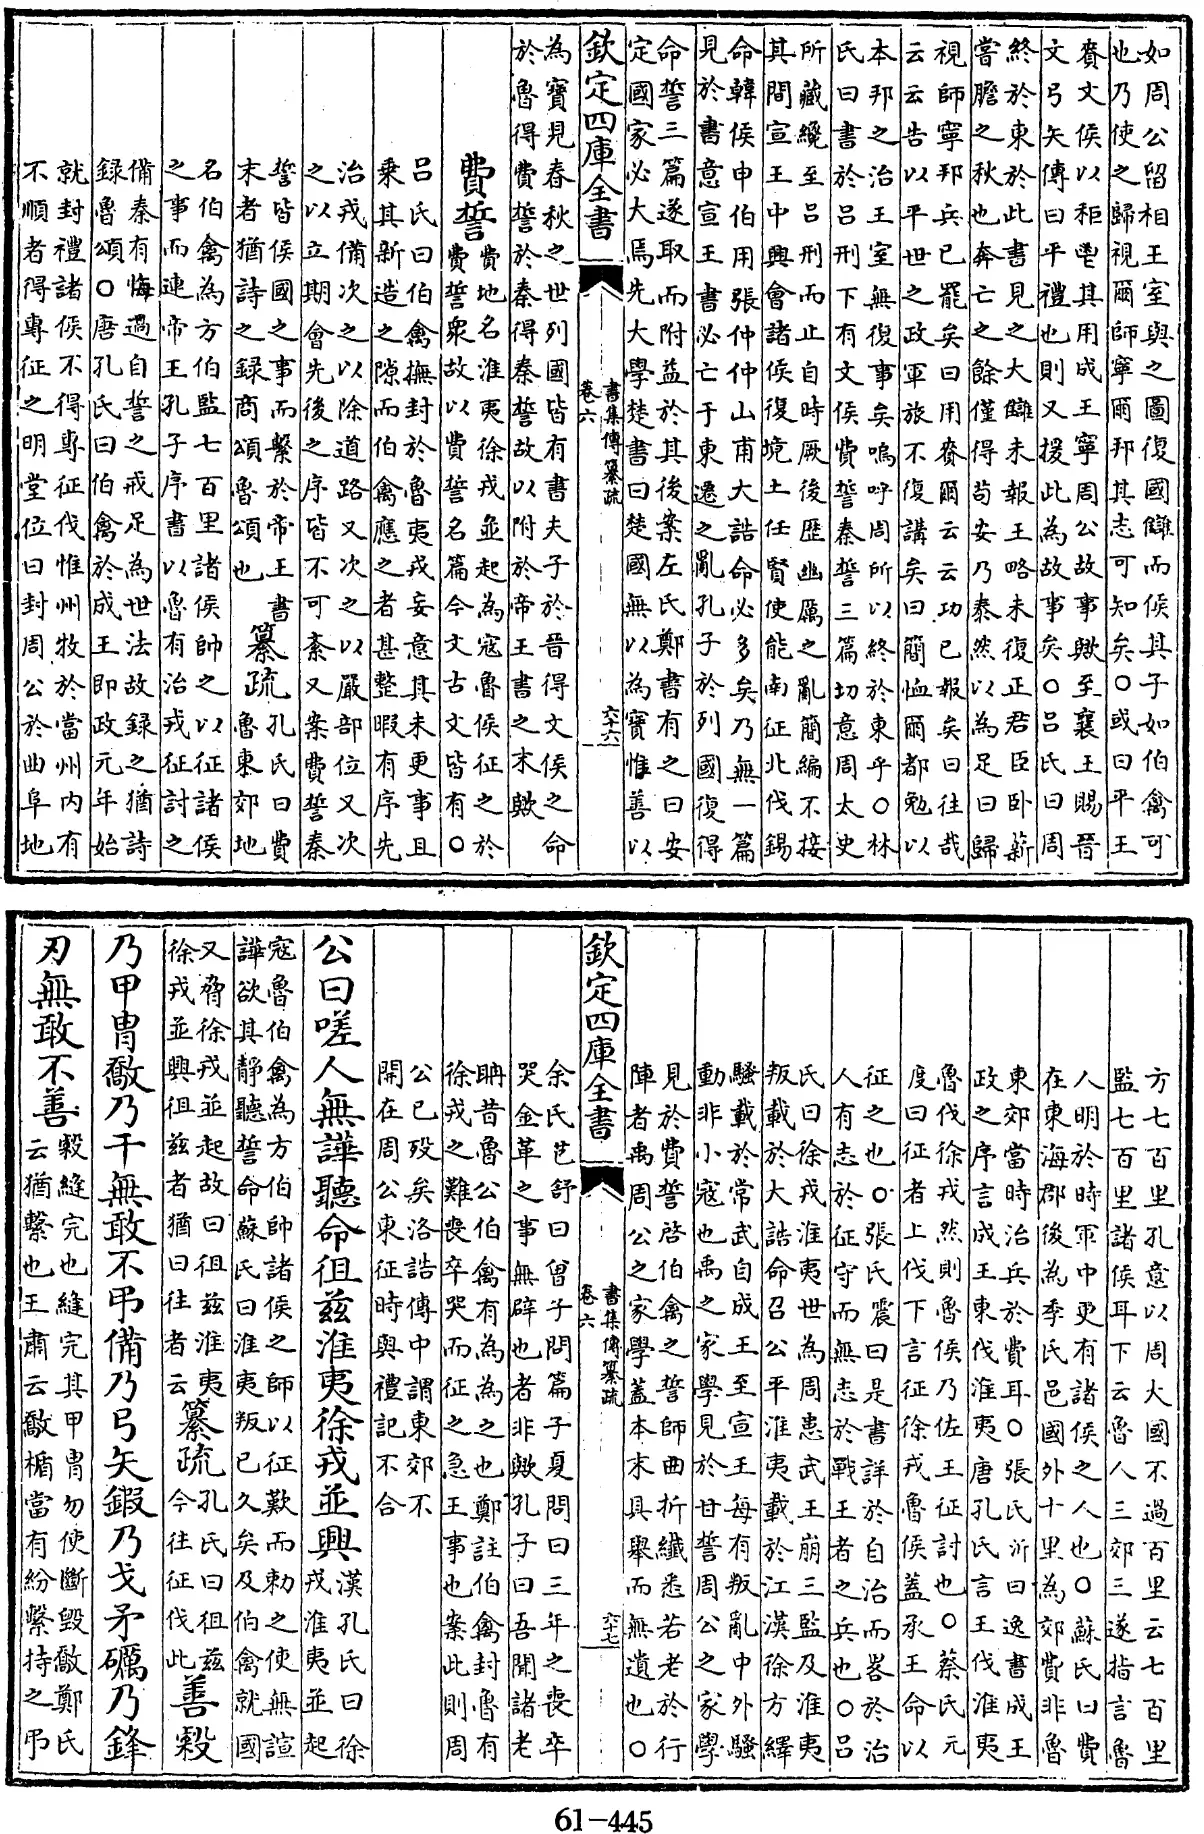 如周公留相王室與之圖復國讎而侯其子如伯禽可
也乃使之歸視爾師寧爾邦其志可知矣○或曰平王
賚文侯以秬鬯其用成王寧周公故事歟至襄王賜晉
文弓矢傳曰平禮也則又援此為故事矣○呂氏曰周
終於東於此書見之大讎未報王略未復正君臣卧薪
嘗膽之秋也奔亡之餘僅得苟安乃泰然以為足曰歸
視師寧邦兵已罷矣曰用賚爾云云功已報矣曰往哉
云云告以平世之政軍旅不復講矣曰簡恤爾都勉以
本邦之治王室無復事矣嗚呼周所以終於東乎○林
氏曰書於呂刑下有文侯費誓秦誓三篇切意周太史
所藏纔至呂刑而止自時厥後歴幽厲之亂簡編不接
其間宣王中興會諸侯復境土任賢使能南征北伐錫
命韓侯申伯用張仲仲山甫大誥命必多矣乃無一篇
見於書意宣王書必亡于東遷之亂孔子於列國復得
命誓三篇遂取而附益於其後案左氏鄭書有之曰安
定國家必大焉先大學楚書曰楚國無以為寳惟善以
欽定四庫全書
書集傳纂疏
卷六
六十六
為寳見春秋之世列國皆有書夫子於晉得文侯之命
於魯得費誓於秦得秦誓故以附於帝王書之末歟
費誓
費地名淮夷徐戎並起為寇魯侯征之於
費誓衆故以費誓名篇今文古文皆有○
呂氏曰伯禽撫封於魯夷戎妄意其未更事且
乗其新造之隙而伯禽應之者甚整暇有序先
治戎備次之以除道路又次之以嚴部位又次
之以立期會先後之序皆不可紊又案費誓秦
誓皆侯國之事而繫於帝王書
末者猶詩之録商頌魯頌也
纂疏
孔氏曰費
魯東郊地
名伯禽為方伯監七百里諸侯帥之以征諸侯
之事而連帝王孔子序書以魯有治戎征討之
備秦有悔過自誓之戒足為世法故録之猶詩
録魯頌○唐孔氏曰伯禽於成王即政元年始
就封禮諸侯不得專征伐惟州牧於當州内有
不順者得專征之明堂位曰封周公於曲阜地
方七百里孔意以周大國不過百里云七百里
監七百里諸侯耳下云魯人三郊三遂指言魯
人明於時軍中更有諸侯之人也○蘇氏曰費
在東海郡後為季氏邑國外十里為郊費非魯
東郊當時治兵於費耳○張氏沂曰逸書成王
政之序言成王東伐淮夷唐孔氏言王伐淮夷
魯伐徐戎然則魯侯乃佐王征討也○蔡氏元
度曰征者上伐下言征徐戎魯侯蓋承王命以
征之也○張氏震曰是書詳於自治而畧於治
人有志於征守而無志於戰王者之兵也○呂
氏曰徐戎淮夷世為周患武王崩三監及淮夷
叛載於大誥命召公平淮夷載於江漢徐方繹
騷載於常武自成王至宣王每有叛亂中外騷
動非小寇也禹之家學見於甘誓周公之家學
見於費誓啓伯禽之誓師曲折纖悉若老於行
陣者禹周公之家學蓋本末具舉而無遺也○
欽定四庫全書
書集傳纂疏
卷六
六十七
余氏芑舒曰曾子問篇子夏問曰三年之喪卒
哭金革之事無辟也者非歟孔子曰吾聞諸老
聃昔魯公伯禽有為為之也鄭註伯禽封魯有
徐戎之難喪卒哭而征之急王事也案此則周
公已歿矣洛誥傳中謂東郊不
開在周公東征時與禮記不合
公曰嗟人無譁聽命徂兹淮夷徐戎並興
漢孔氏曰徐
戎淮夷並起
寇魯伯禽為方伯帥諸侯之師以征歎而勑之使無諠
譁欲其靜聽誓命蘇氏曰淮夷叛已久矣及伯禽就國
又脅徐戎並起故曰徂兹淮夷
徐戎並興徂兹者猶曰往者云
纂疏
孔氏曰徂兹
今往征伐此
善敹
乃甲胄敿乃干無敢不弔備乃弓矢鍛乃戈矛礪乃鋒
刃無敢不善
敹縫完也縫完其甲胄勿使斷毁敿鄭氏
云猶繫也王肅云敿楯當有紛繫持之弔
61-445